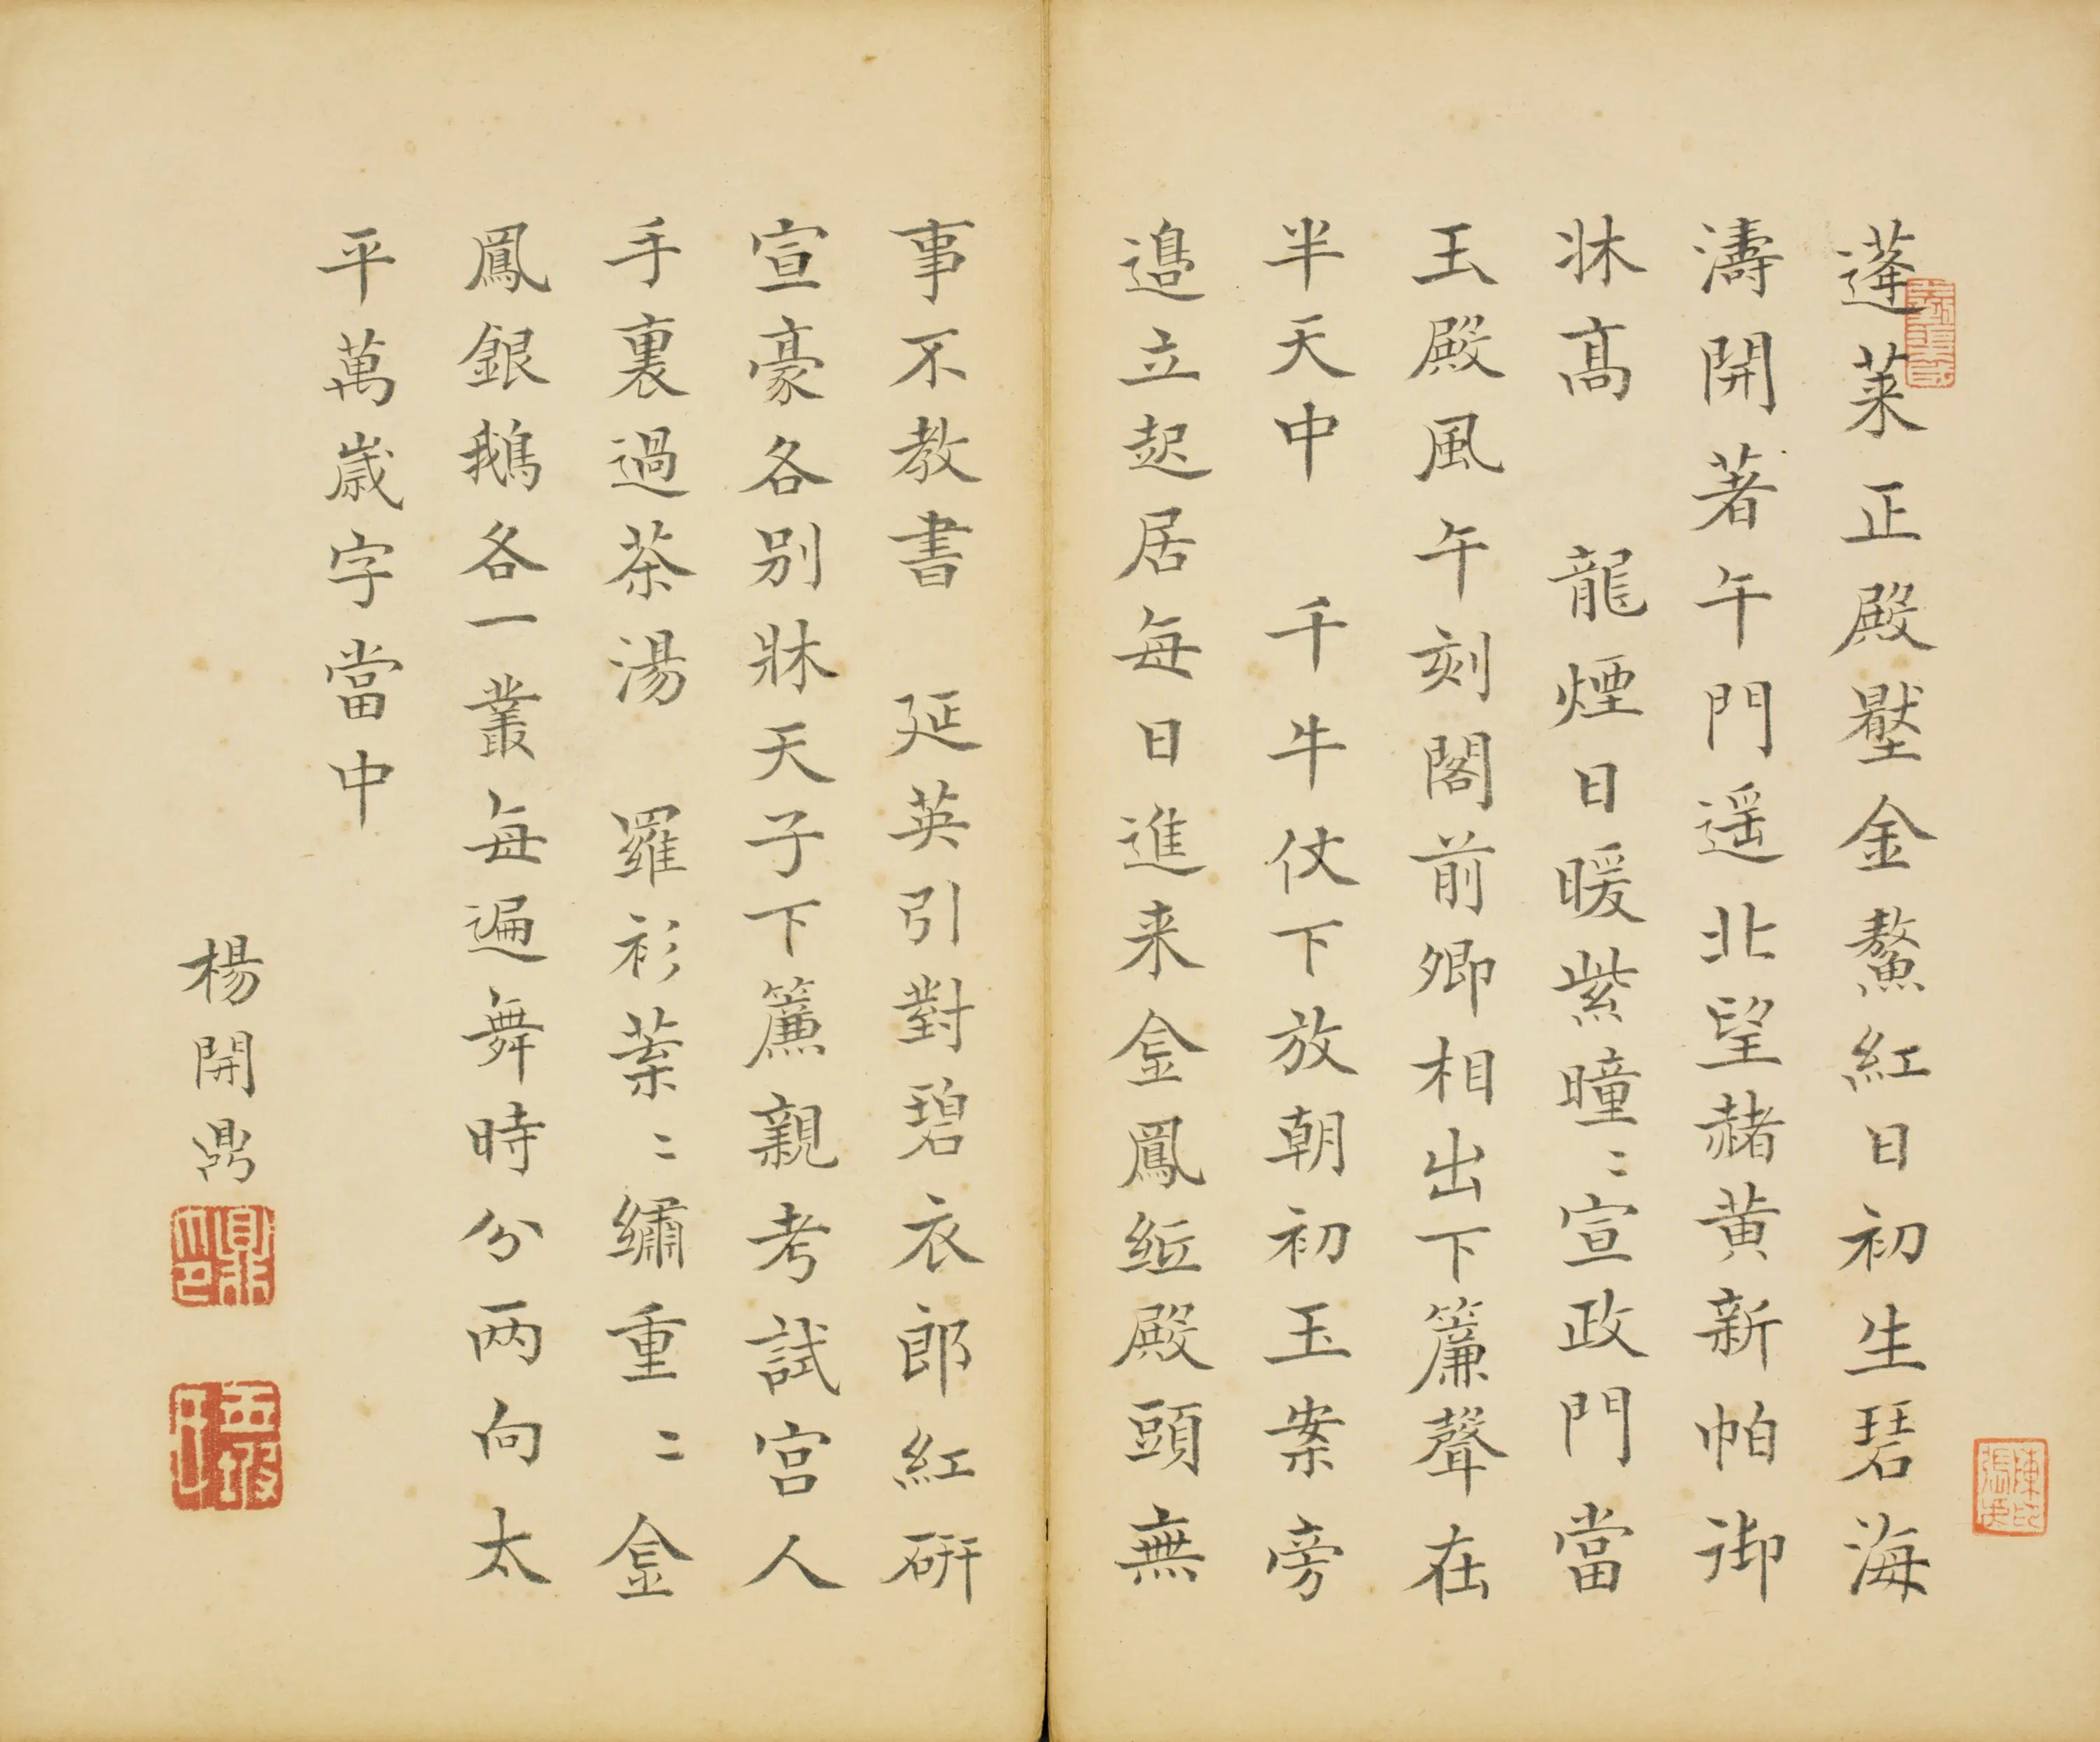 蓬萊正殿壓金鰲紅日初生碧海
濤開著午門遥北望赭黄新帕御
牀高　龍煙日暖紫曈〻宣政門當
玉殿風午刻閣前卿相出下簾聲在
半天中　千牛仗下放朝初玉案旁
邉立起居每日進来金鳳紙殿頭無
事不教書　延英引對碧衣郎紅硏
宣豪各别牀天子下簾親考試宫人
手裏過茶湯　羅衫葉〻繡重〻金
鳳銀鵝各一叢每遍舞時分两向太
平萬歲字當中
楊開鼎